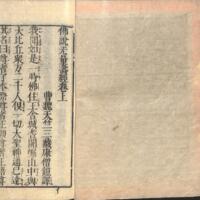 佛說无量壽經卷上
曹魏天竺三藏康僧鎧譯
我聞如是一時佛住王舍城耆闍崛山中與
大比丘衆万二千人俱一切大聖神通已達
其名曰尊者了本際尊者正願尊者